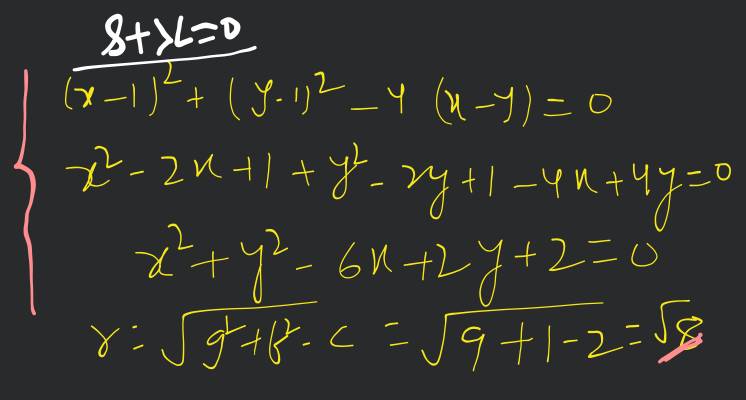 S+λL=0
(x-1)² + (y-1)² - 4 (x-y) = 0
x² - 2x + 1 + y² - 2y + 1 - 4x + 4y = 0
x² + y² - 6x + 2y + 2 = 0
r = √(g²+f²-c) = √(9+1-2) = √8